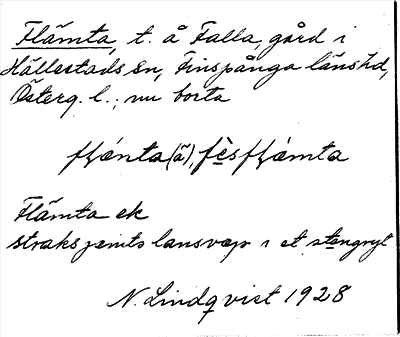 Flämta, t. å Falla, gård i
Hällestads sn, Finspånga länshd,
Österg. l.; nu borta
flæ̀nta (ä), fèsflæ̀mta
Flämta ek
straks jämte lansvæp i et stengryt
N. Lindqvist 1928